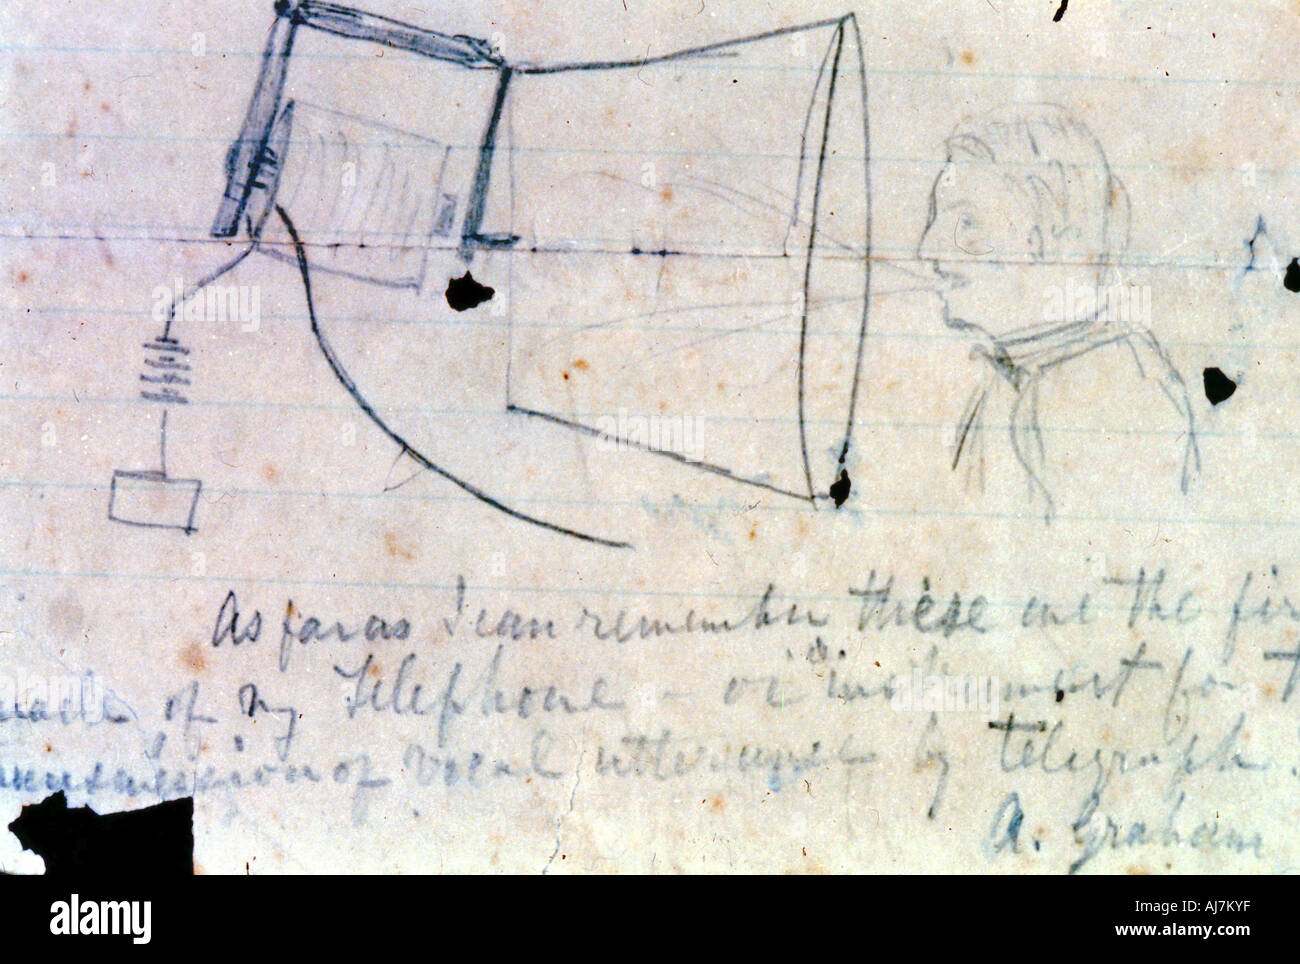 As far as I can remember these are the fir
made of my Telephone - or instrument for t
ransmission of vocal utterance by telegraph.
A. Graham
alamy
Image ID: AJ7KYF
www.alamy.com